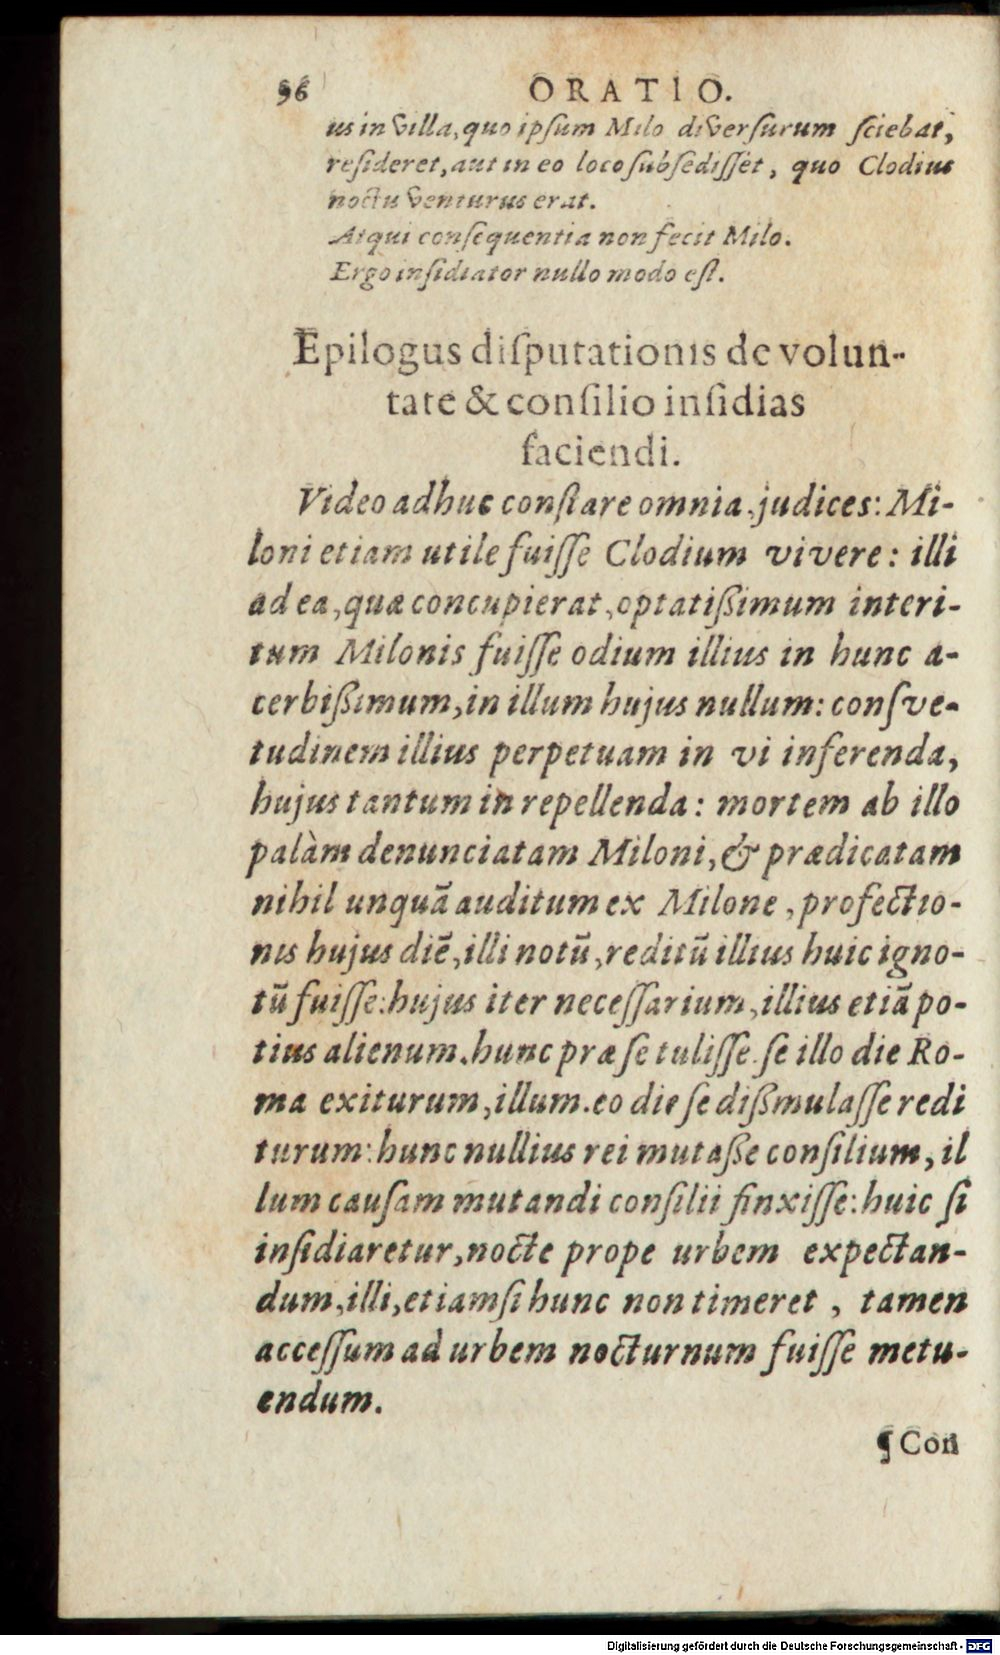 96 ORATIO.
us in villa, quo ipsum Milo diversurum sciebat,
resideret, aut in eo loco subsedisset, quo Clodius
noctu venturus erat.
Atqui consequentia non fecit Milo.
Ergo insidiator nullo modo est.
Epilogus disputationis de volun-
tate & consilio insidias
faciendi.
Video adhuc constare omnia, judices: Mi-
loni etiam utile fuisse Clodium vivere: illi
ad ea, quæ concupierat, optatißimum interi-
tum Milonis fuisse odium illius in hunc a-
cerbißimum, in illum hujus nullum: consve-
tudinem illius perpetuam in vi inferenda,
hujus tantum in repellenda: mortem ab illo
palàm denunciatam Miloni, & prædicatam
nihil unquã auditum ex Milone, profectio-
nis hujus diẽ, illi notũ, reditũ illius huic igno-
tũ fuisse: hujus iter necessarium, illius etiã po-
tius alienum. hunc præ se tulisse. se illo die Ro-
ma exiturum, illum. eo die se dißmulasse redi
turum: hunc nullius rei mutaße consilium, il
lum causam mutandi consilii finxisse: huic si
insidiaretur, nocte prope urbem expectan-
dum, illi, etiamsi hunc non timeret, tamen
accessum ad urbem nocturnum fuisse metu-
endum.
¶ Con
Digitalisierung gefördert durch die Deutsche Forschungsgemeinschaft - DFG